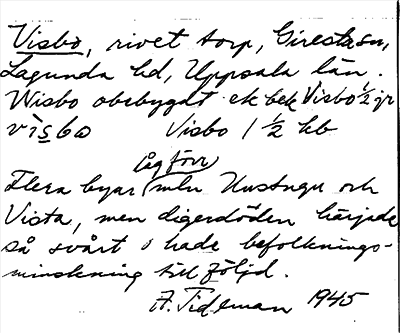 Visbo, rivet torp, Girestasn,
Lagunda hd, Uppsala län.
Wisbo obebyggt ek bek Visbo ½ gr
vi̇sbω Visbo / ½ hb
låg förr
Flera byar mln Hustugu och
Vista, men digerdöden härjade
så svårt o hade befolknings-
minskning till följd.
A. Tideman 1945